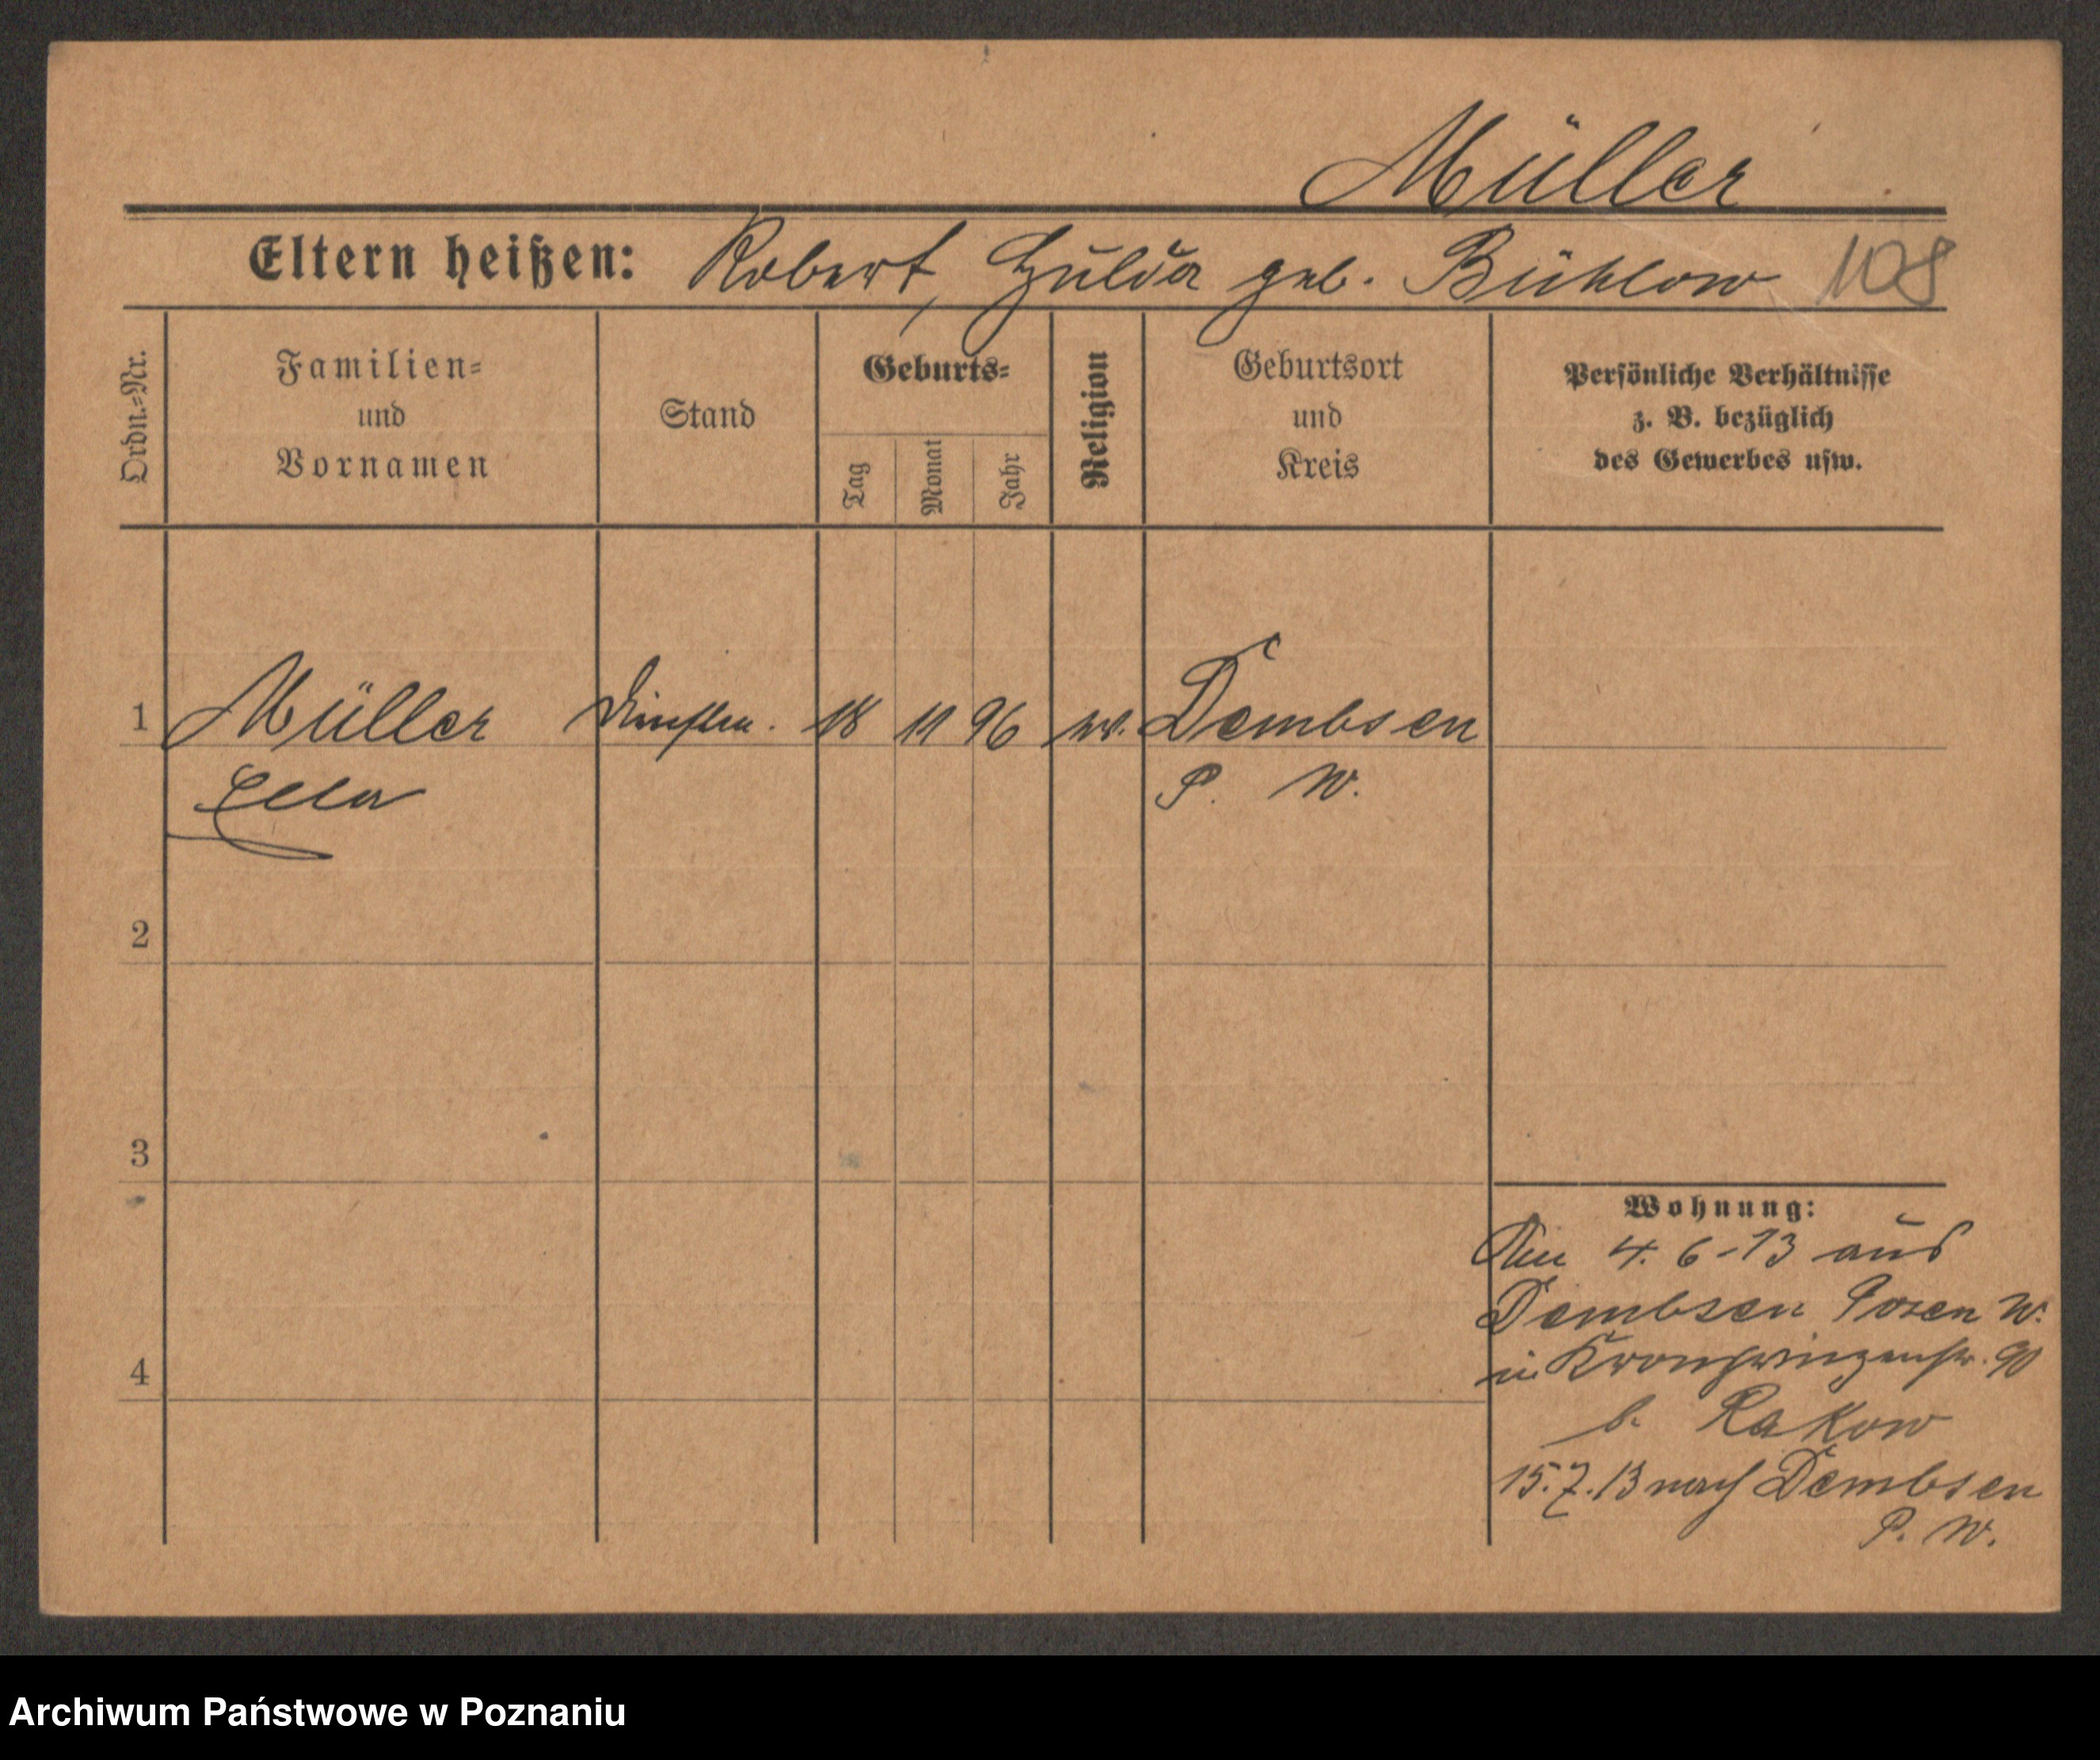 Müller
Eltern heißen: Robert, Hulda geb. Bühlow 108
Ordn.=Nr.
Familien=
und
Vornamen
Stand
Geburts=
Tag
Monat
Jahr
Religion
Geburtsort
und
Kreis
Persönliche Verhältnisse
z. B. bezüglich
des Gewerbes usw.
1 Müller 18 11 96 Dembsen
Ella P. W.
2
3
4
Wohnung:
Am 4. 6-13 aus
Dembsen Posen W.
in Kronprinzenstr. 90
b. Rakow
15.7.13 nach Dembsen
P. W.
Archiwum Państwowe w Poznaniu